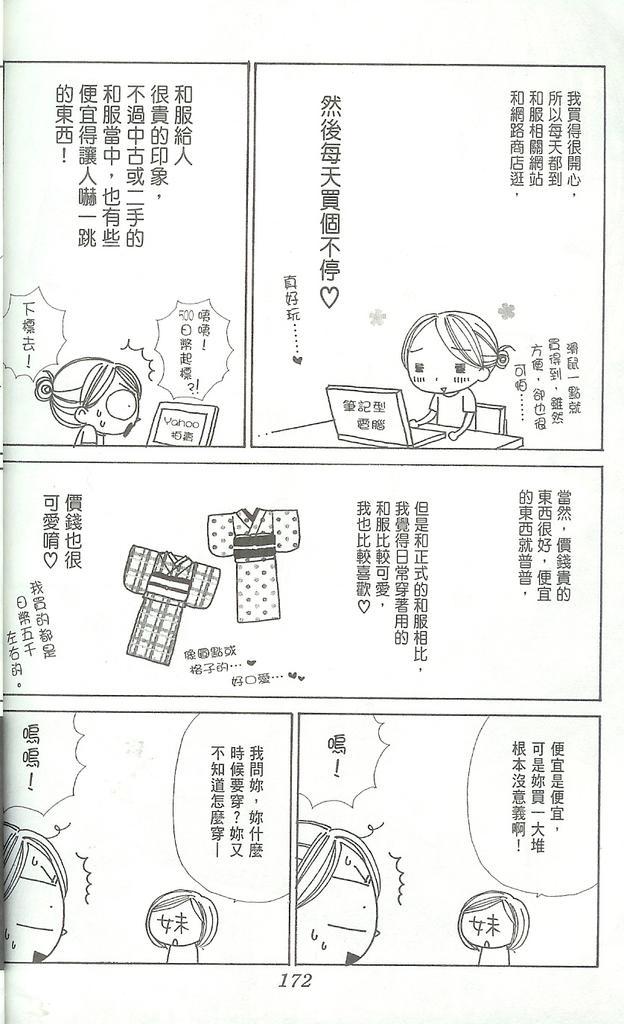 我買得很開心，
所以每天都到
和服相關網站
和網路商店逛，
然後每天買個不停♡
真好玩……♥
滑鼠一點就
買得到，雖然
方便，卻也很
可怕……
筆記型
電腦
和服給人
很貴的印象，
不過中古或二手的
和服當中，也有些
便宜得讓人嚇一跳
的東西！
咦咦！
500
日幣起標?!
下標去！
Yahoo
拍賣
當然，價錢貴的
東西很好，便宜
的東西就普普，
但是和正式的和服相比，
我覺得日常穿著用的
和服比較可愛，
我也比較喜歡♡
像圓點或
格子的…♥
好口愛…♥♥
價錢也很
可愛唷♡
我買的都是
日幣五千
左右的。
便宜是便宜，
可是妳買一大堆
根本沒意義啊！
嗚！
妹
我問妳，妳什麼
時候要穿？妳又
不知道怎麼穿—
嗚嗚！
妹
172